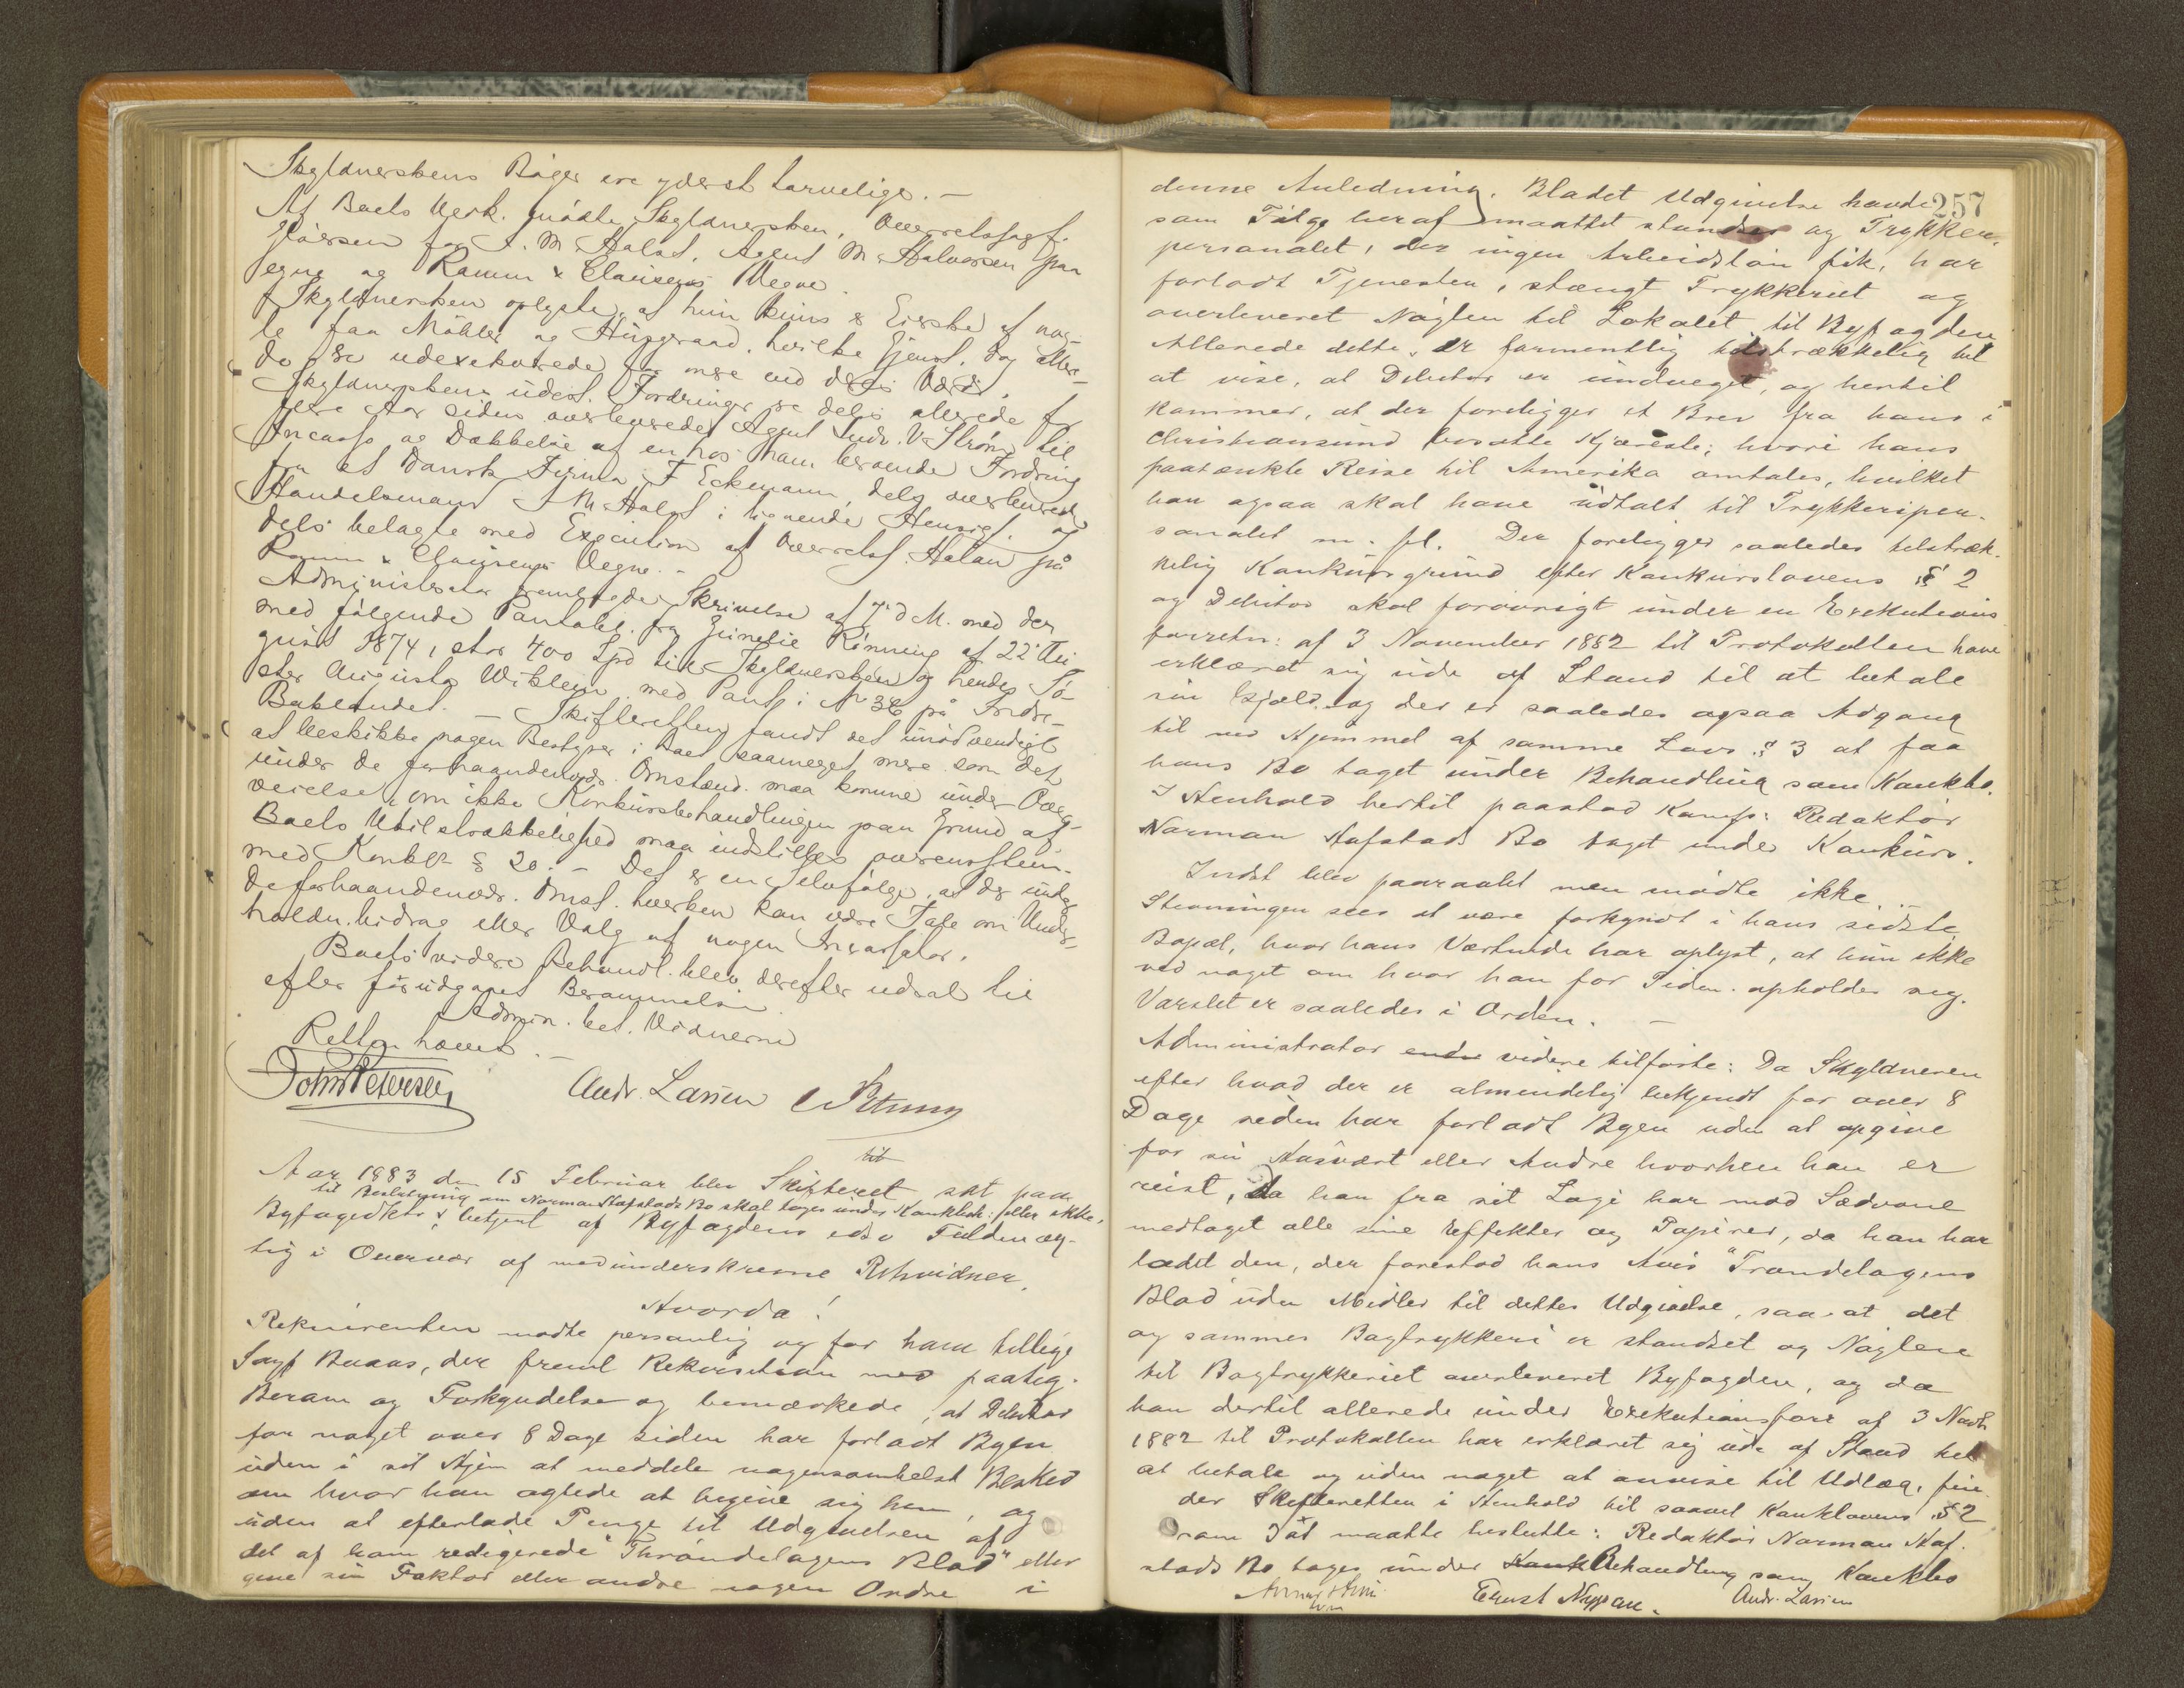 Skyldnerskens Bøger ere yderst tarvelige. –
Af Boets Vedk. mødte Skyldnersken, Overretssagf.
for I. M. Holst, Agent M. Halvorsen paa
egne og Ramm & Clausens Vegne.
Skyldnersken oplyste, at hun kuns er Eierske af nog-
le faa Møbler og Husgeraad, hvilke Gjenst. dog aller-
de ere udexekverede for mere end deres Værd.
Skyldnerskens udest. Fordringer ere dels allerede for
flere Aar siden overleverede Agent Ludv. V. Strøm til
Incasso og Dækkelse af en hos ham beroende Fordring
fra et Dansk Firma F. Eckmann, dels overleverede
Handelsmand I M Holst i lignende Hensigt, og
dels belagte med Execution af Overretss. Heian på
Ramm & Clausens Vegne. –
Administrator fremlagde Skrivelse af 7de d. M. med der-
med følgende Pantobl. fra Rønning af 22 Au-
gust 1874, stor 400 Spd til Skyldnersken og hendes Sø-
ster Augusta med Pant i No 36 på Indre-
Baklandet. – Skifteretten fandt det unødvendigt
at beskikke nogen Bestyrer i Boet saameget mere som det
under de forhaandenvær. Omstænd. maa komme under Over-
veielse, om ikke Konkursbehandlingen paa Grund af
Boets Utilstrækkelighed maa indstilles overensstem.
med Konkl § 20. – Det er en Selvfølge, at der under
de forhaandenvær. Omst. hverken kan være Tale om Under-
holdn. bidrag eller Valg af nogen Incassator.
Boets videre Behandl. blev derefter udsat til
efter forudgaaet Berammelse.
Admin. bet. Vidnerne
Retten hævet. –
John Petersen Andr. Larsen
til
Aar 1883 den 15 Februar blev Skifteret sat paa
til Beslutning om Norman Hafstads Bo skal tages under Konkbeh: eller ikke,
Byfogedktr & betjent af Byfogdens edsv Fuldmæg-
tig i Overvær af medunderskrevne Retsvidner,
Hvorda!
Rekvirenten mødte personlig og for ham tillige
Sagf Buaas, der freml Rekvisition med paateg.
Beram og Forkyndelse og bemærkede, at Debitor
for noget over 8 Dage siden har forladt Byen
uden i sit Hjem at meddele nogensomhelst Besked
om hvor han agtede at begive sig hen, og
uden at efterlade Penge til Udgivelsen af
det af ham redigerede "Throndelagens Blad" eller
give sin Faktor eller andre nogen Ordre i
257
denne Anledning. Bladet Udgivelse havde
som Følge heraf maattet standses og Trykker-
personalet, der ingen Arbeidsløn fik, har
forladt Tjenesten, stængt Trykkeriet og
overleveret Nøglen til Lokalet til Byfogden
Allerede dette er formentlig tilstrækkelig til
at vise, at Debitor er undveget, og hertil
kommer, at der foreligger et Brev fra hans i
Christiansund bosatte Kjæreste; hvori hans
paatænkte Reise til Amerika omtales, hvilket
han ogsaa skal have udtalt til Trykkeriper-
sonalet m. fl. Der foreligger saaledes tilstræk-
kelig Konkursgrund efter Konkurslovens § 2
og Debitor skal forøvrigt under en Exekutions
forretn: af 3 November 1882 til Protokollen have
erklæret sig ude af Stand til at betale
sin Gjæld og der er saaledes ogsaa Adgang
til ved Hjemmel af samme Lovs § 3 at faa
hans Bo taget under Behandling som Konkbo.
I Henhold hertil paastod Komp: Redaktør
Norman Hafstads Bo taget under Konkurs.
Indst blev paaraabt men mødte ikke.
Stevningen sees at være forkyndt i hans sidste
Bopæl, hvor hans Værtinde har oplyst, at hun ikke
ved noget om hvor han for Tiden opholder sig.
Varslet er saaledes i Orden. –
Administrator endv videre tilførte: Da Skyldneren
efter hvad der er almindelig bekjendt for over 8
Dage siden har forladt Byen uden at opgive
for sin Husvært eller Andre hvorhen han er
reist, da han fra sit Logi har mod Sædvane
medtaget alle sine Effekter og Papirer, da han har
ladet den, der forestod hans Avis "Trondelagens
Blad uden Midler til dettes Udgivelse, saa at det
og sammes Bogtrykkeri er standset og Nøglene
til Bogtrykkeriet overleveret Byfogden, og da
han dertil allerede under Exekutionsforr af 3 Novb
1882 til Protokollen har erklæret sig ude af Stand til
at betale og uden noget at anvise til Udlæg, fin-
der Skifteretten i Henhold til saavel Konklovens § 2
som 3 at maatte beslutte: Redaktør Norman Haf-
stads Bo tages under Konk Behandling som Konkbo
Ernst Nyppan. Andr. Larsen